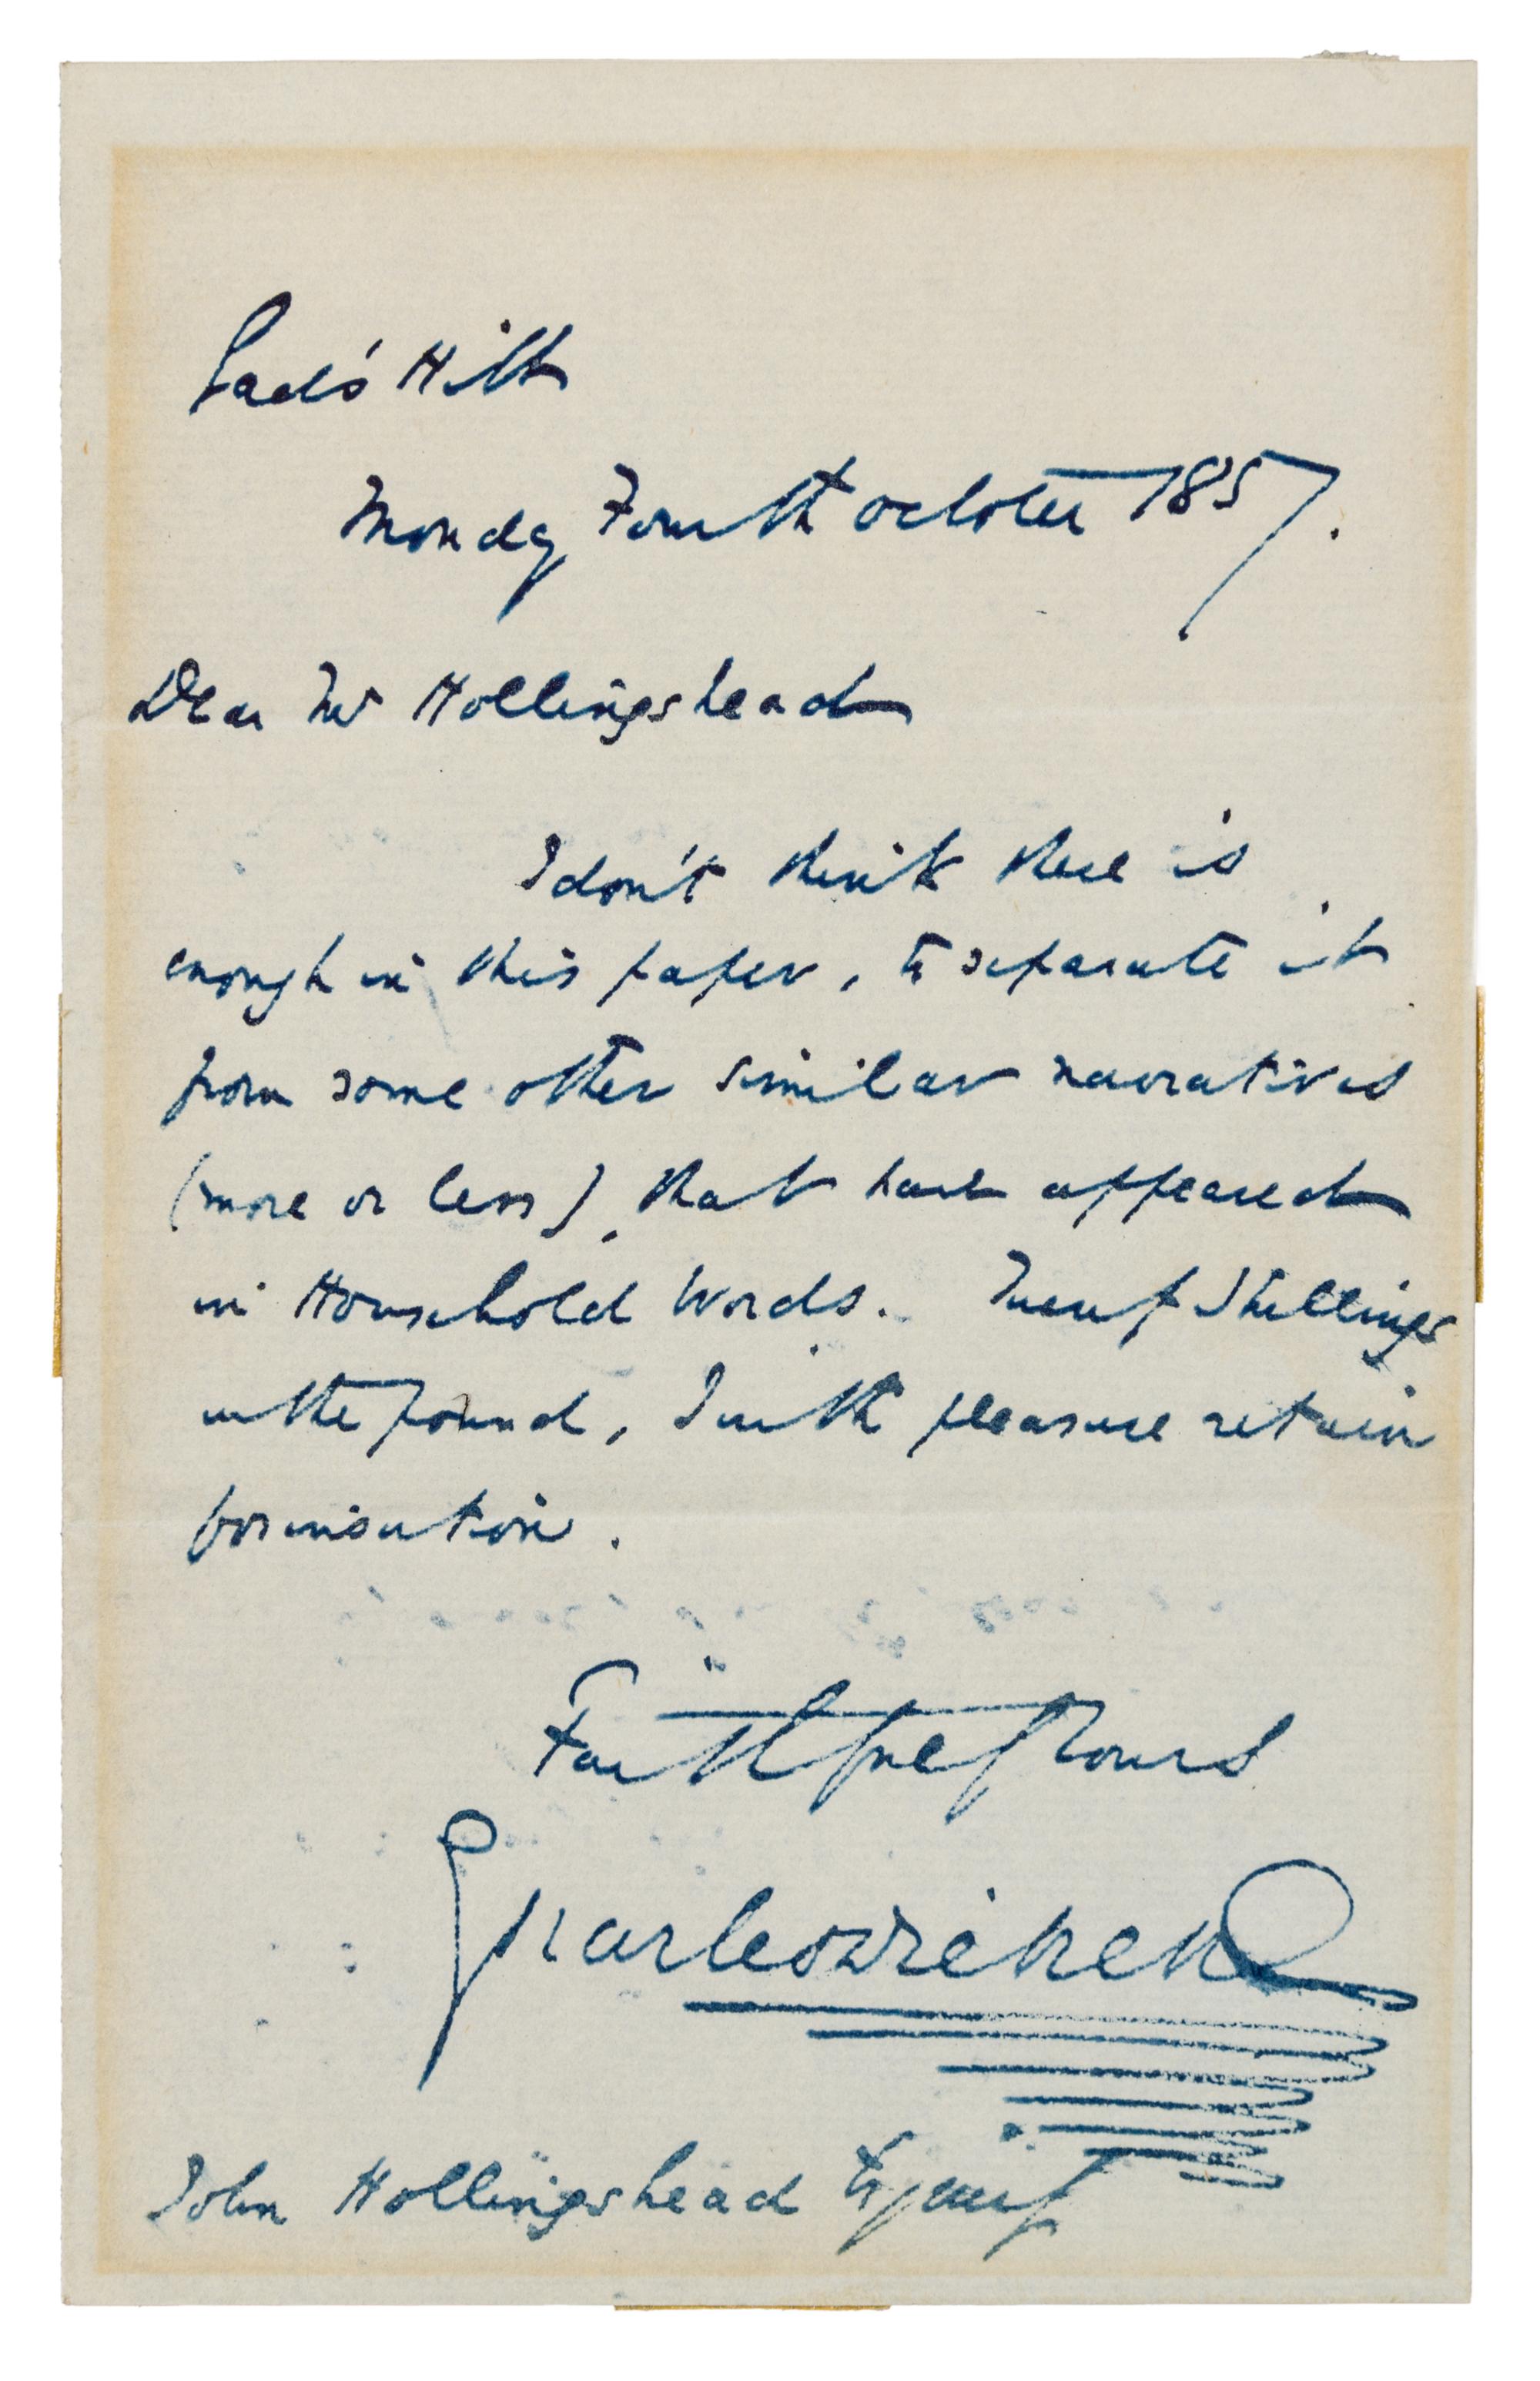 Gad's Hill
Monday Fourth October 1857.
Dear Mr Hollingshead
I don't think there is
enough in this paper, to separate it
from some other similar narratives
(more or less), that have appeared
in Household Words. Twenty Shillings
in the pound, I with pleasure retain
for insertion.
Faithfully Yours
Charles Dickens
John Hollingshead Esquire